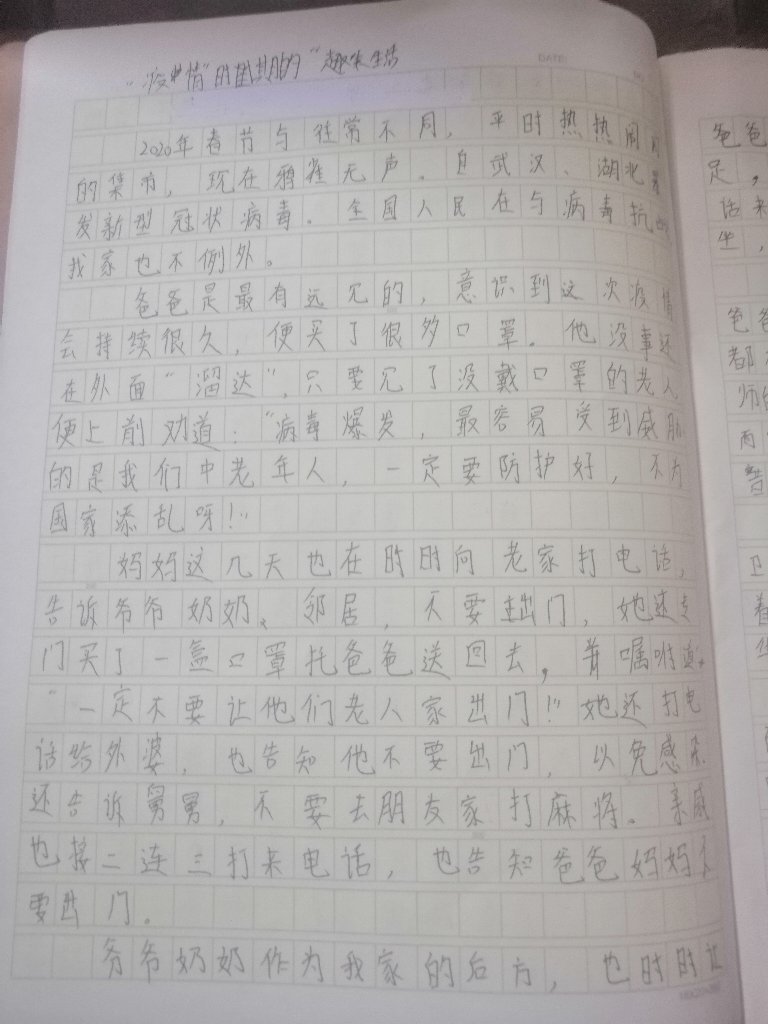 "疫情"时期的"趣味生活
2020年春节与往常不同，平时热热闹
的集市，现在鸦雀无声。自武汉、湖北
发新型冠状病毒。全国人民在与病毒抗
我家也不例外。
爸爸是最有远见的，意识到这次疫情
会持续很久，便买了很多口罩。他没事还
在外面"溜达"，只要见了没戴口罩的老人
便上前劝道："病毒爆发，最容易受到威胁
的是我们中老年人，一定要防护好，不为
国家添乱呀！"
妈妈这几天也在时时向老家打电话，
告诉爷爷奶奶、邻居，不要出门，她还专
门买了一盒口罩托爸爸送回去，嘱咐道
"一定不要让他们老人家出门！"她还打电
话给外婆，也告知他不要出门，以免感染
还告诉舅舅，不要去朋友家打麻将。亲戚
也接二连三打来电话，也告知爸爸妈妈
要出门。
爷爷奶奶作为我家的后方，也时时
爸爸
足，
话来
坐，
爸爸
都
师
两
着